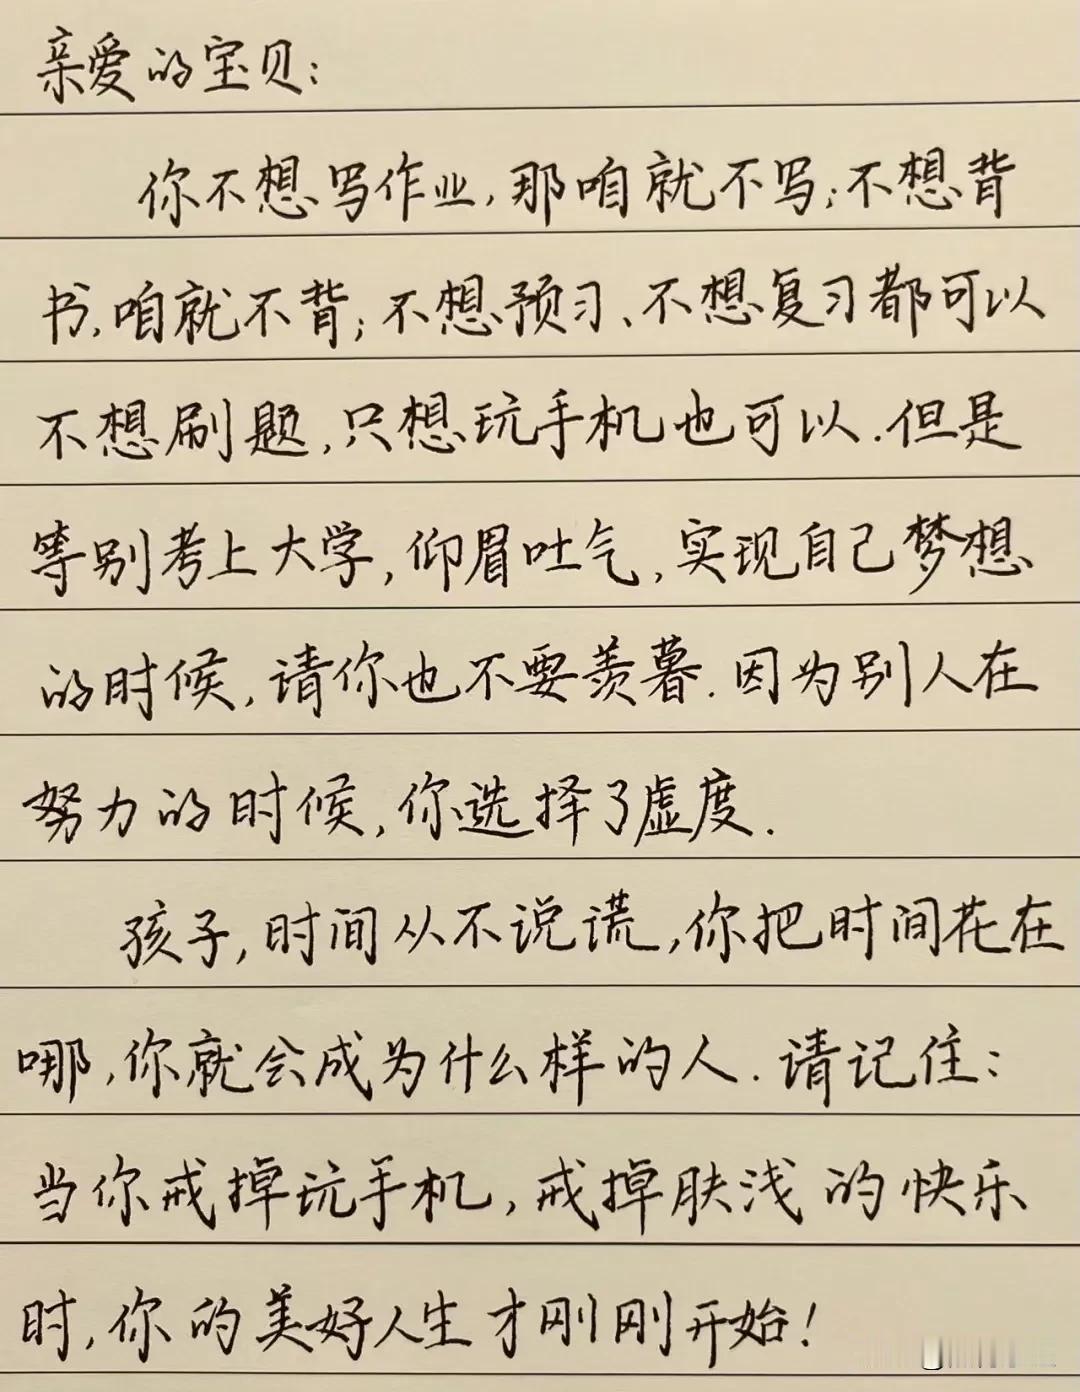 亲爱的宝贝：
你不想写作业,那咱就不写;不想背
书,咱就不背;不想预习、不想复习都可以
不想刷题,只想玩手机也可以.但是
等别考上大学,仰眉吐气,实现自己梦想
的时候,请你也不要羡暮.因为别人在
努力的时候,你选择了虚度.
孩子,时间从不说谎,你把时间花在
哪,你就会成为什么样的人.请记住：
当你戒掉玩手机,戒掉肤浅的快乐
时,你的美好人生才刚刚开始!